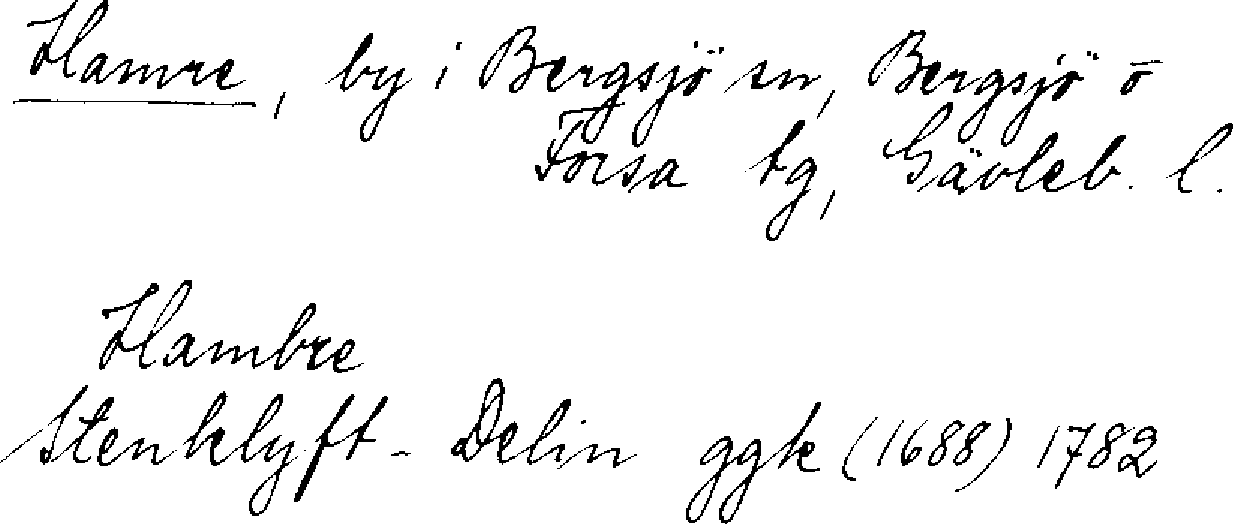 Hamre, by i Bergsjö sn, Bergsjö o
Forsa tg, Gävleb. l.
Hambre
Stenklyft - Delin ggk (1688) 1782